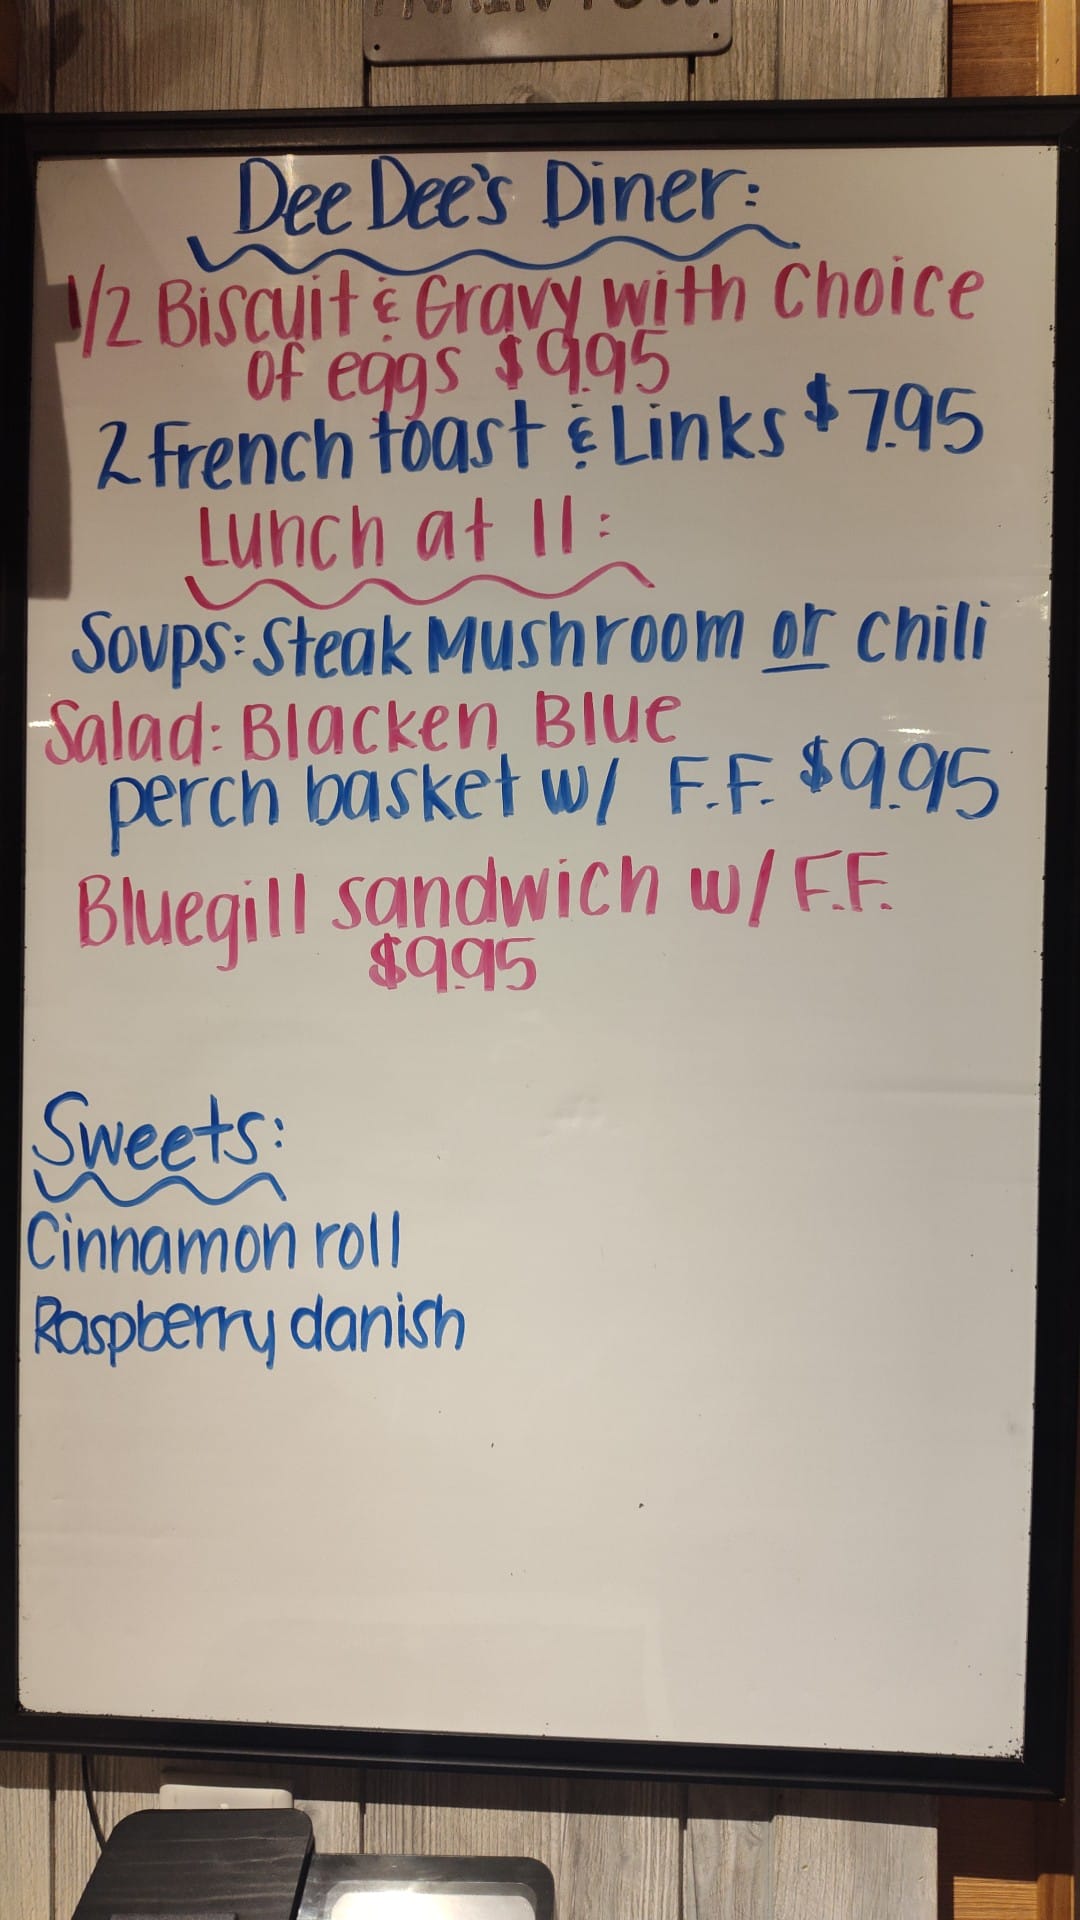 Dee Dee's Diner:
1/2 Biscuit & Gravy with Choice
of eggs $9.95
2 French toast & Links $7.95
Lunch at 11:
Soups: Steak Mushroom or chili
Salad: Blacken Blue
perch basket w/ F.F. $9.95
Bluegill sandwich w/ F.F.
$9.95
Sweets:
Cinnamon roll
Raspberry danish